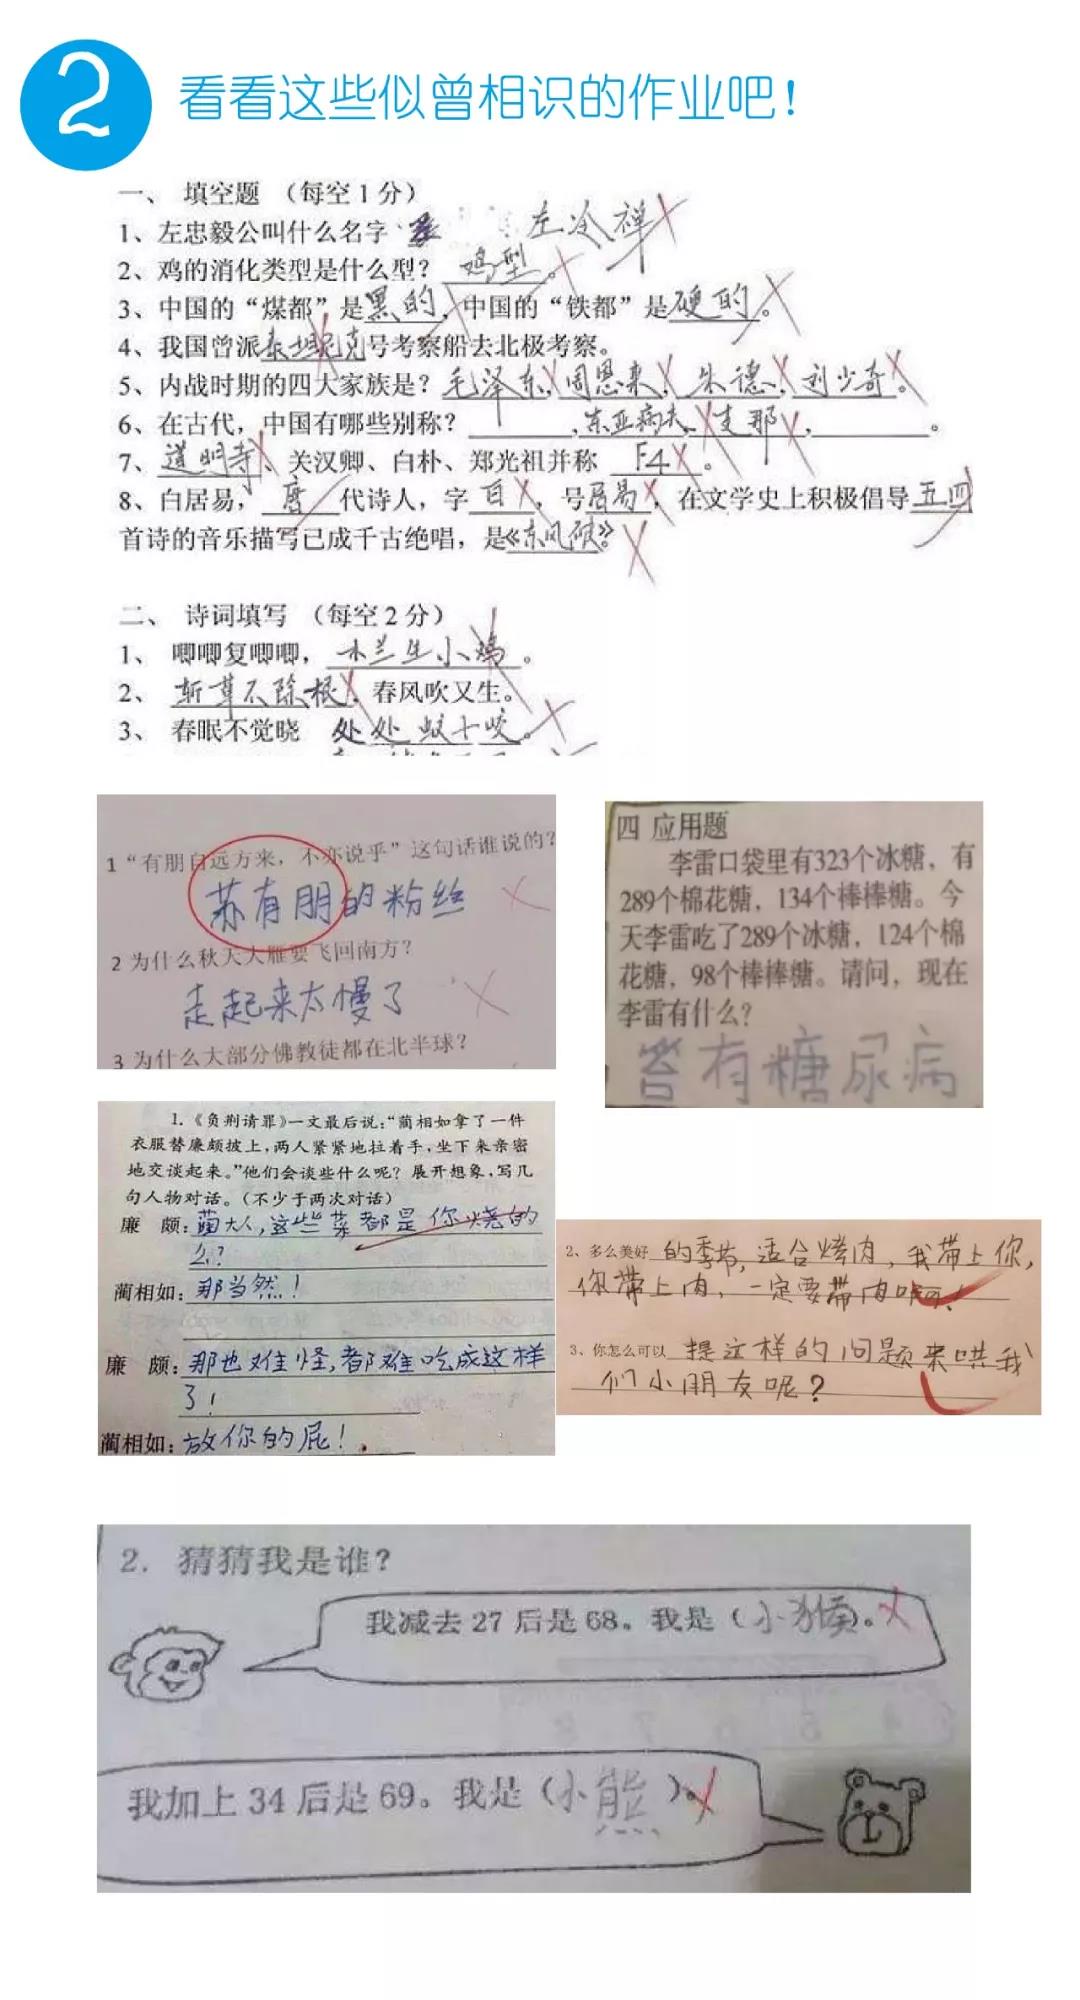 2
看看这些似曾相识的作业吧！
一、 填空题 （每空1分）
1、左忠毅公叫什么名字 左冷禅
2、鸡的消化类型是什么型？ 鸡型。
3、中国的“煤都”是黑的，中国的“铁都”是硬的。
4、我国曾派泰坦尼克号考察船去北极考察。
5、内战时期的四大家族是？毛泽东，周恩来，朱德，刘少奇。
6、在古代，中国有哪些别称？ ，东亚病夫、支那， 。
7、道明寺、关汉卿、白朴、郑光祖并称 F4 。
8、白居易， 唐 代诗人，字 白 ，号居易，在文学史上积极倡导五四
首诗的音乐描写已成千古绝唱，是《东风破》
二、 诗词填写 （每空2分）
1、 唧唧复唧唧，木兰生小鸡。
2、 斩草不除根，春风吹又生。
3、 春眠不觉晓 处处蚊子咬。
1“有朋自远方来，不亦说乎”这句话谁说的？
苏有朋的粉丝
2 为什么秋天大雁要飞回南方？
走起来太慢了
3 为什么大部分佛教徒都在北半球？
四 应用题
李雷口袋里有323个冰糖，有
289个棉花糖，134个棒棒糖。今
天李雷吃了289个冰糖，124个棉
花糖，98个棒棒糖。请问，现在
李雷有什么？
答有糖尿病
1.《负荆请罪》一文最后说：“蔺相如拿了一件
衣服替廉颇披上，两人紧紧地拉着手，坐下来亲密
地交谈起来。”他们会谈些什么呢？展开想象，写几
句人物对话。（不少于两次对话）
廉 颇：蔺大人，这些菜都是你烧的
么？
蔺相如：那当然！
廉 颇：那也难怪，都难吃成这样
了！
蔺相如：放你的屁！
2、多么美好 的季节，适合烤肉，我带上你，
你带上肉，一定要带肉啊！
3、你怎么可以 提这样的问题来哄我
们小朋友呢？
2. 猜猜我是谁？
我减去27后是68。我是（小猴）。
我加上34后是69。我是（小熊）。